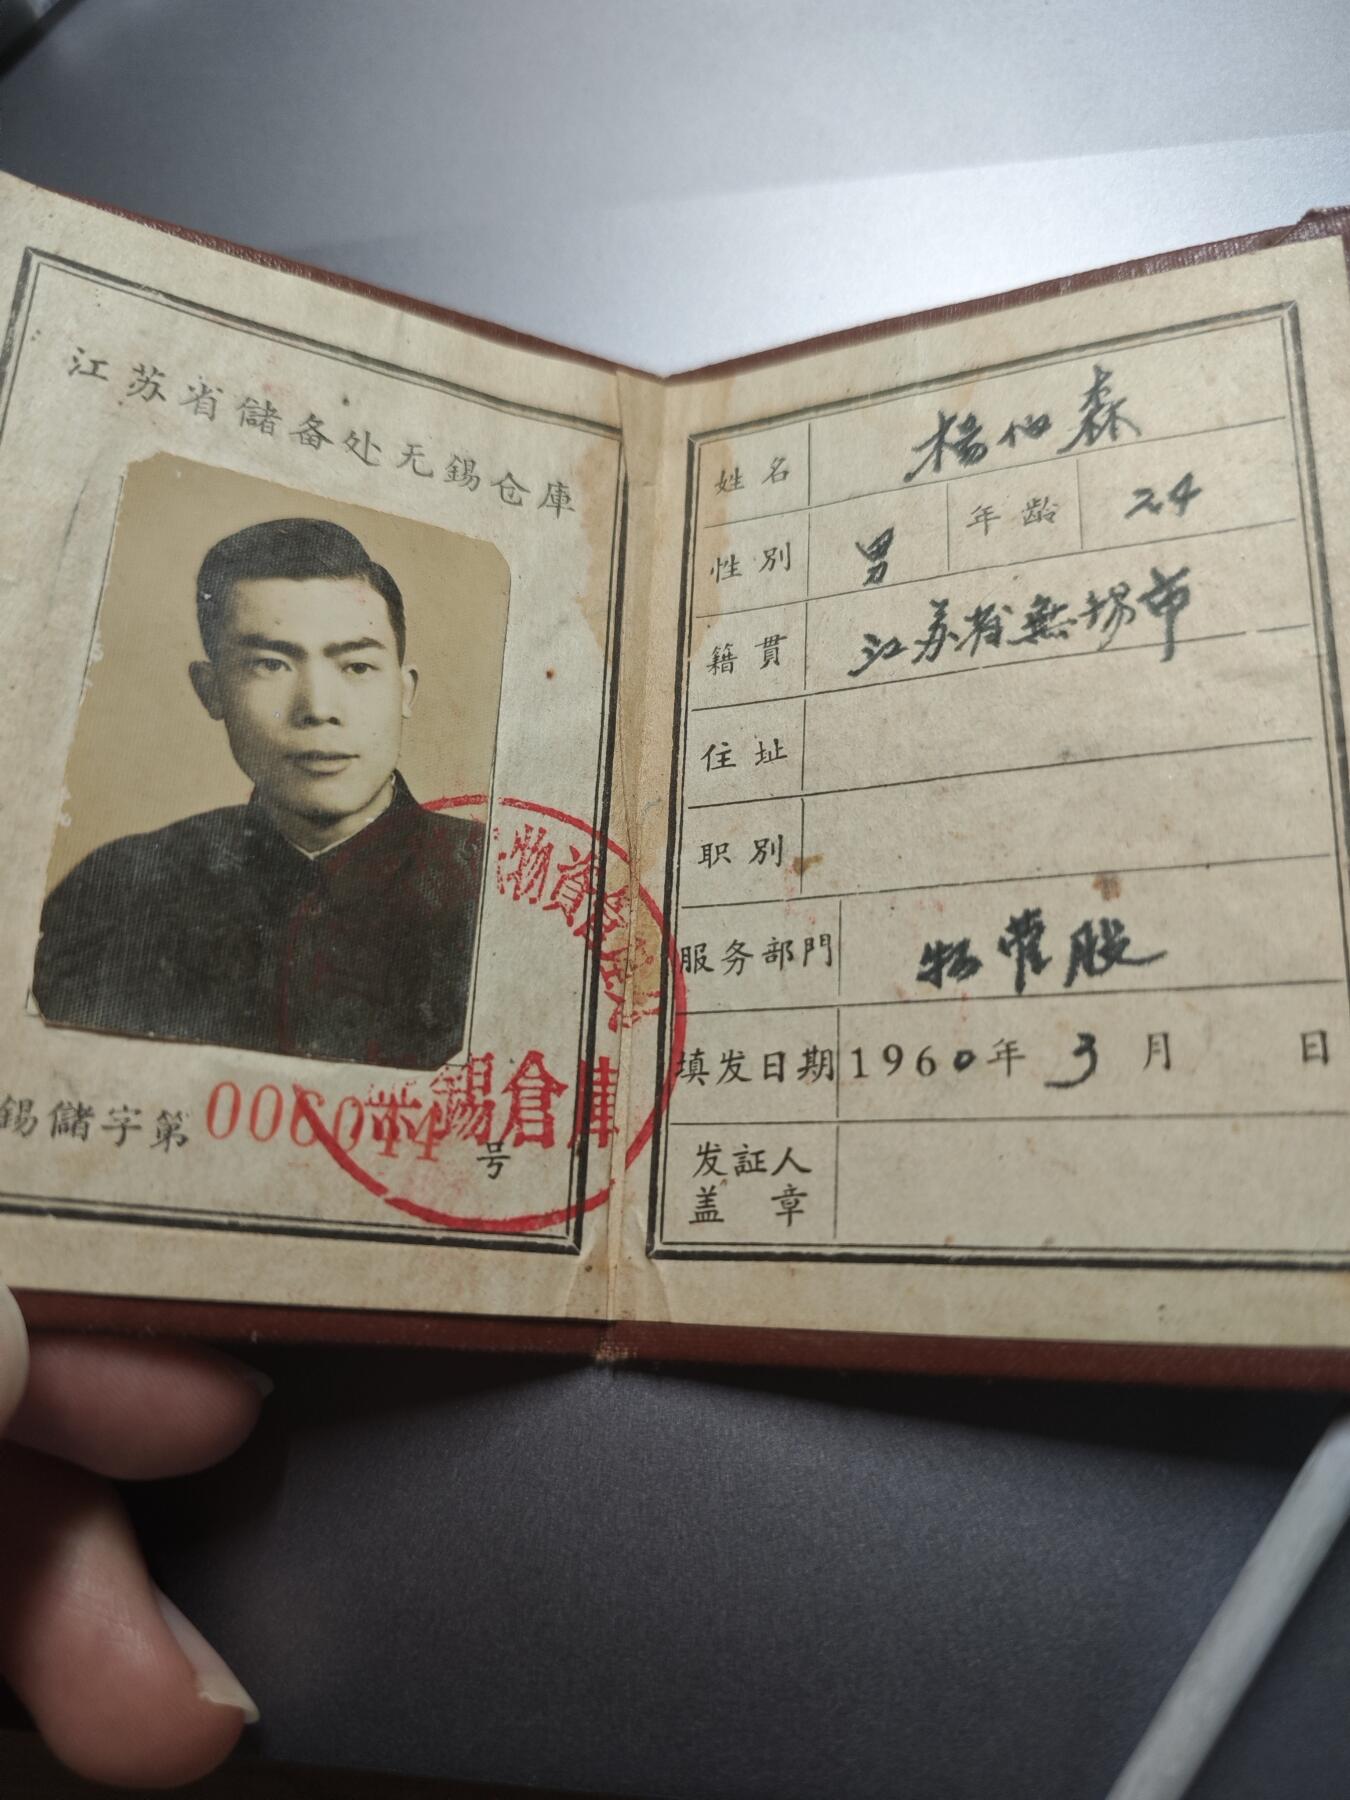 江苏省儲备处无錫仓庫
物資
錫倉庫
錫儲字第 号
姓名 楊仙森
性别 男 年龄 24
籍貫 江苏省無锡市
住址
职别
服务部門 物管股
填发日期 1960年3月 日
发証人
盖 章